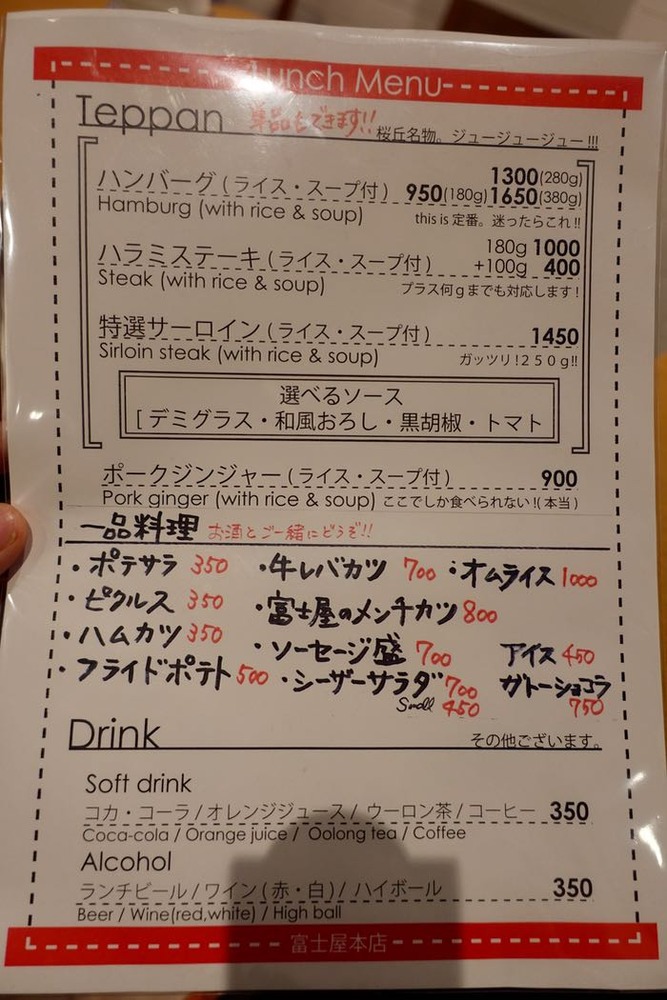 Lunch Menu
Teppan 単品もできます!! 桜丘名物。ジュージュージュー!!!
1300(280g)
ハンバーグ(ライス・スープ付) 950(180g)1650(380g)
Hamburg (with rice & soup) this is 定番。迷ったらこれ!!
180g 1000
ハラミステーキ(ライス・スープ付) +100g 400
Steak (with rice & soup) プラス何gまでも対応します!
特選サーロイン(ライス・スープ付) 1450
Sirloin steak (with rice & soup) ガッツリ!250g!!
選べるソース
[デミグラス・和風おろし・黒胡椒・トマト
ポークジンジャー(ライス・スープ付) 900
Pork ginger (with rice & soup) ここでしか食べられない!(本当)
一品料理 お酒とご一緒にどうぞ!!
・ポテサラ 350 ・牛レバカツ 700 ・オムライス 1000
・ピクルス 350 ・富士屋のメンチカツ 800
・ハムカツ 350 ・ソーセージ盛 700 アイス 450
・フライドポテト 500 ・シーザーサラダ 700 ガトーショコラ
Small 450 750
Drink その他ございます。
Soft drink
コカ・コーラ/オレンジジュース/ ウーロン茶/コーヒー 350
Coca-cola / Orange juice / Oolong tea / Coffee
Alcohol
ランチビール/ワイン(赤・白)/ ハイボール 350
Beer / Wine(red,white) / High ball
富士屋本店